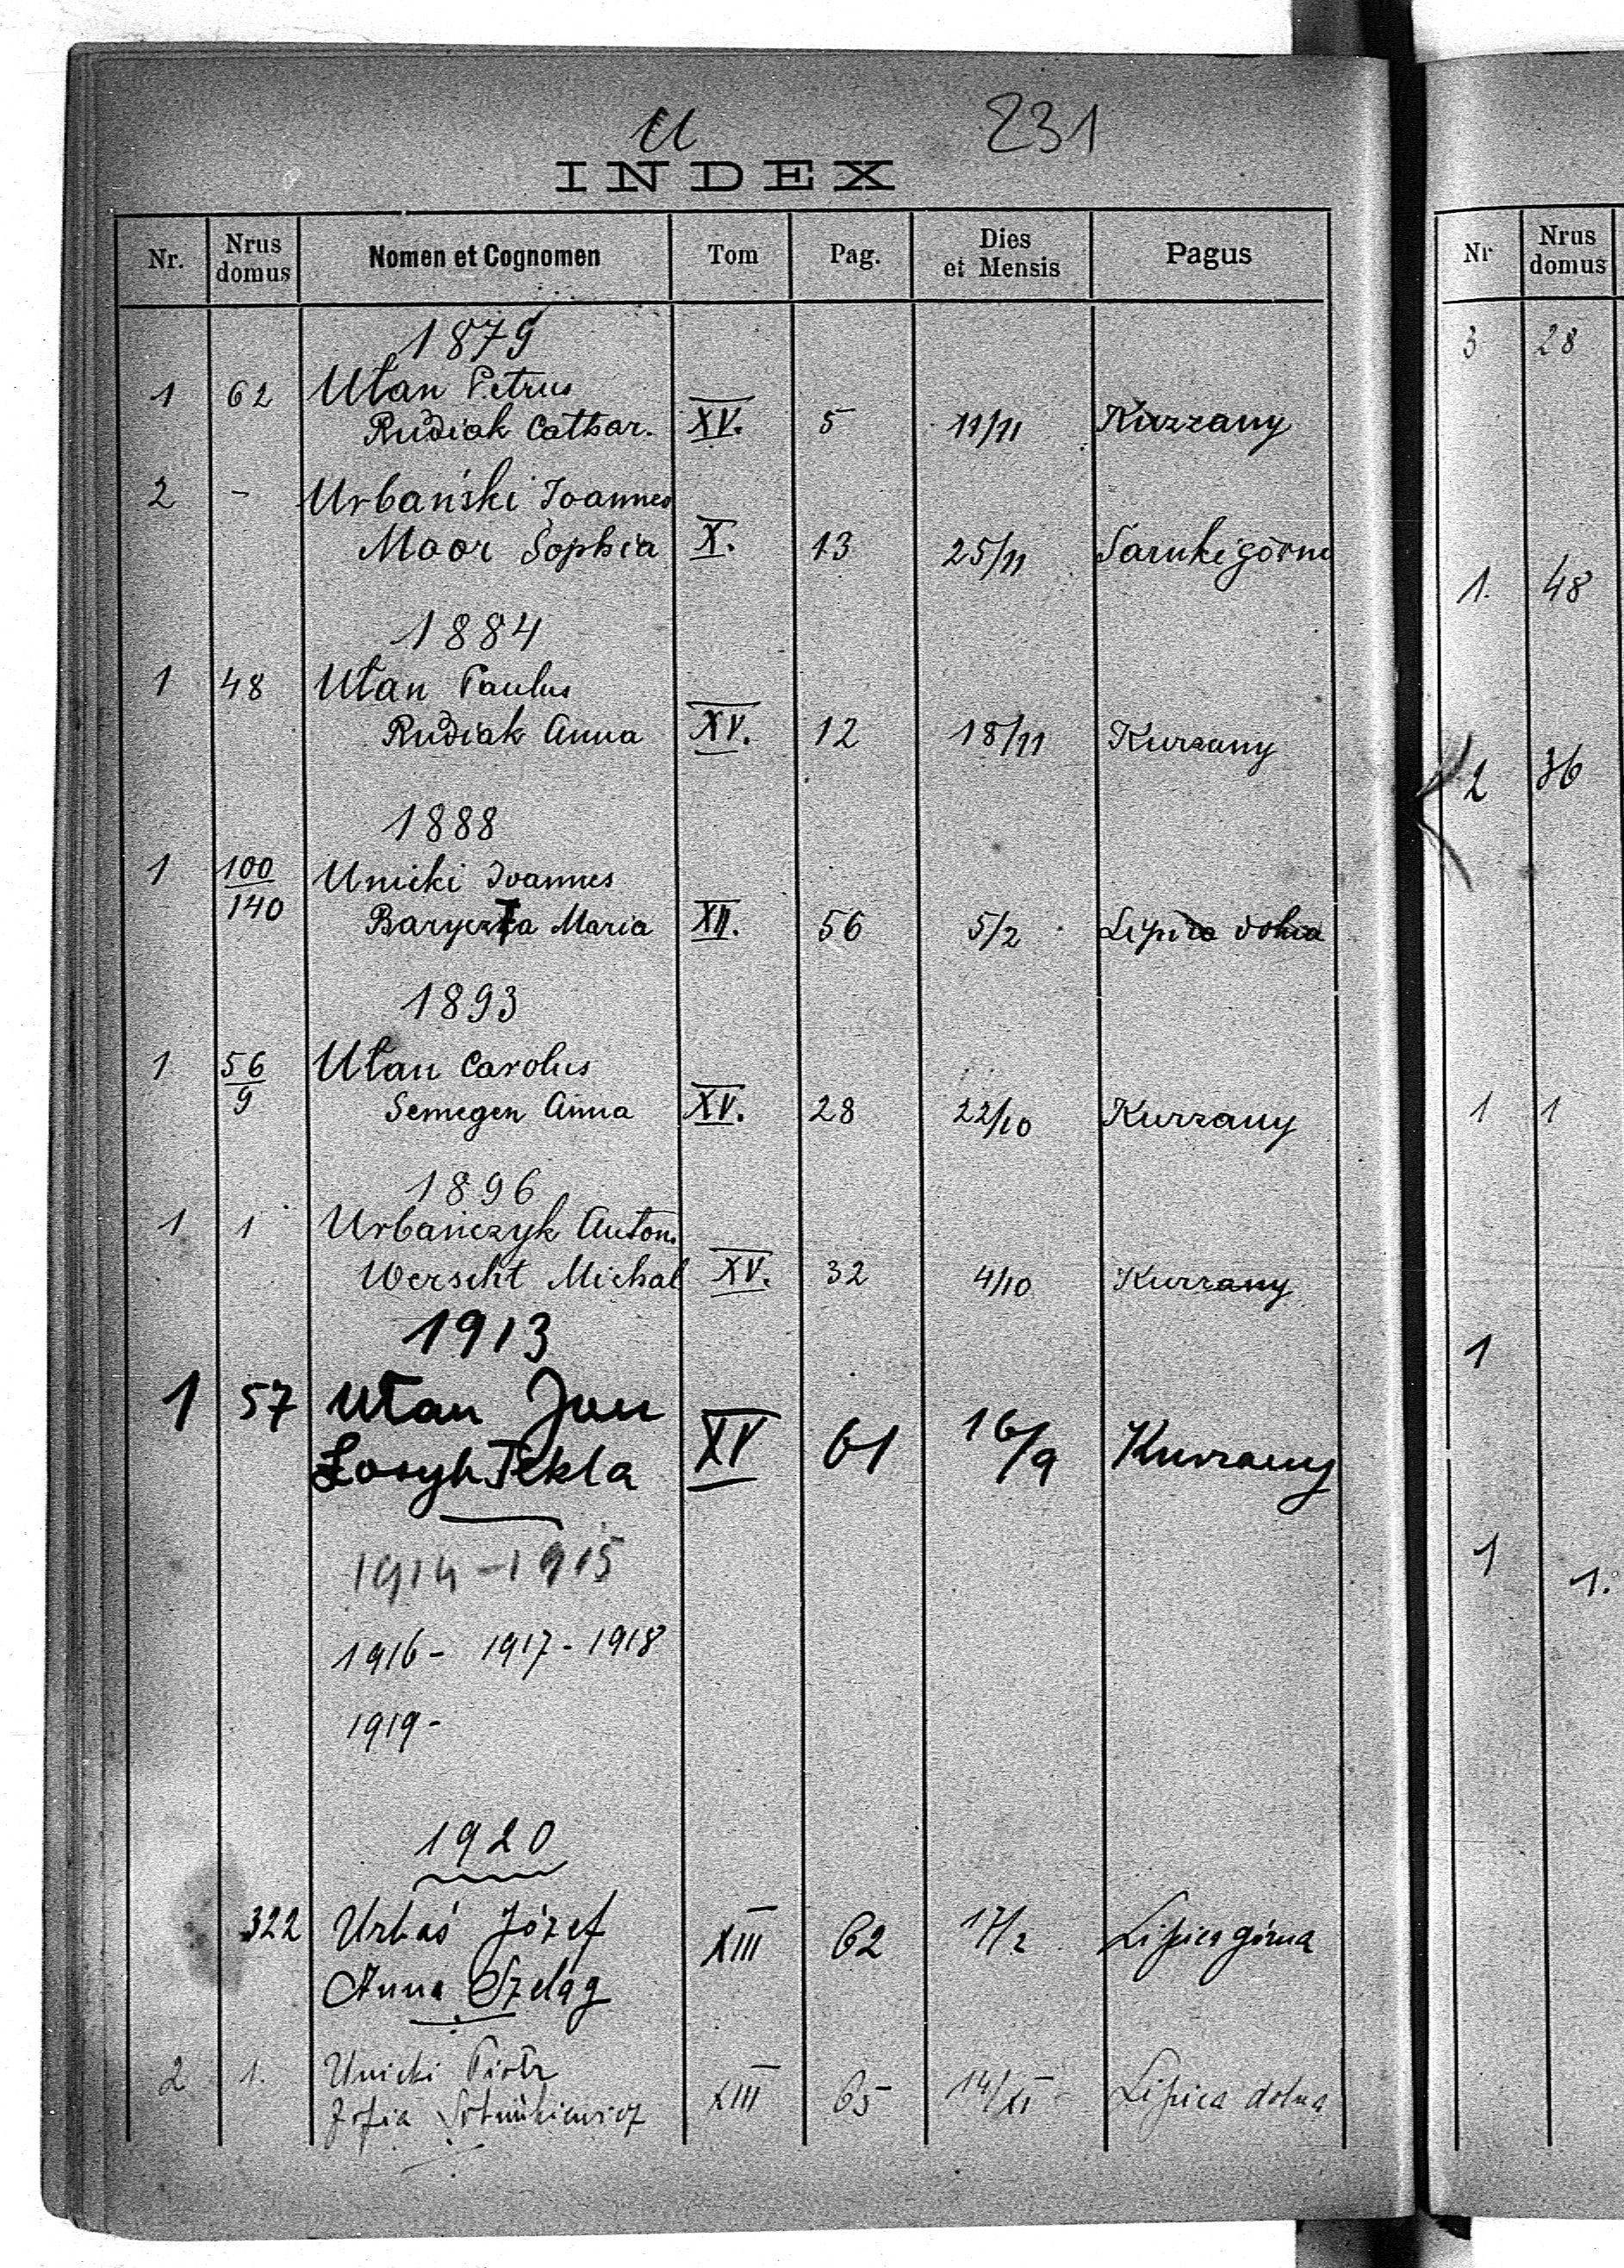 U 231
INDEX
Nr. Nrus domus Nomen et Cognomen Tom Pag. Dies et Mensis Pagus
1879
1 62 Ułan Petrus
Rudiak Cathar. XV. 5 11/11 Kurzany
2 - Urbański Joannes
Moor Sophia X. 13 25/11 Sarnki górne
1884
1 48 Ułan Paulus
Rudiak Anna XV. 12 18/11 Kurzany
1888
1 100/140 Unicki Joannes
Baryczka Maria XII. 56 5/2 Lipica dolna
1893
1 56/9 Ułan Carolus
Semegen Anna XV. 28 22/10 Kurzany
1896
1 1 Urbańczyk Anton.
Werscht Michal XV. 32 4/10 Kurzany
1913
1 57 Ułan Jan
Łosyk Tekla XV 61 16/9 Kurzany
1914-1915
1916- 1917- 1918
1919-
1920
322 Urbaś Józef XIII 62 17/2 Lipica górna
Anna Szeląg
2 1. Unicki Piotr XIII 65 14/XI Lipica dolna
Zofia
Nr Nrus domus
3 28
1. 48
2 36
1 1
1
1 1.